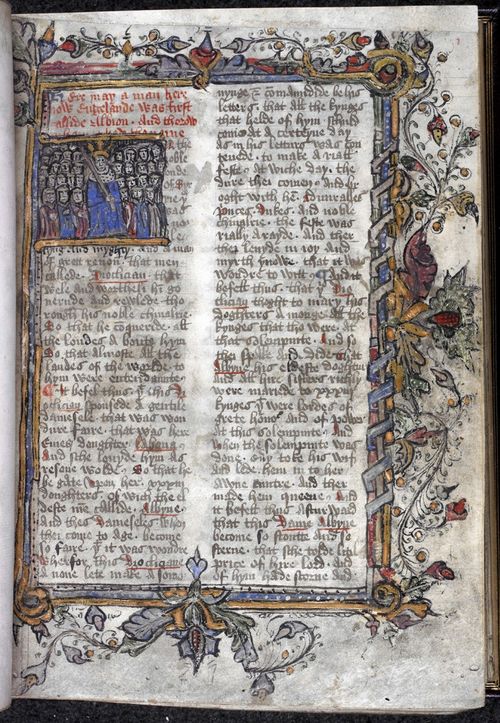 Here may a man here
how Engelande was first
callede Albion. And thorow
noble
londe
kyng And myghty. And a man
of gret renon. that men
callede. Dioclician. that
wele and wortheli he go
uernde and rewlede tho
rough his noble chiualrie.
So that he conquerde. all
the londes a boute hym
So that almoste all the
landes of the worlde to
hym were entendante.
befel thus yt this di
oclician spousede a gentile
damesele that was won
dur faire. that was here
Emes doughter labana.
And sche louyde hym as
resoun wolde. So that he
be gate vpon her. xxxiij
doughters. of wich the el
deste me callide Albyne.
And thes dameseles. when
thei come to age. become
so faire. yt it was wonder
wherfor this Dioclician
A none lete make a somo
nynge & comaundide be his
letters. that all the kynges
that helde of hym schuld
come at a certeyne day.
as in his letturs was con
tenede. to make a riall
feste. At wiche day. thei
dure thei comen. and bro
ught with hem Admiralles
prynces. dukes. And noble
chiualrie. the feste was
rially arayde. And ther
thei leuyde in ioy and
myrth ynowe. that it was
wondre to witt. And it
befell thus. that yis Dio
clician thoght to mary his
doghters a monge all the
kynges that tho were. At
that solempnite. And so
thei spake. and dide that
Albyne his eldeste doghter
and all hire sisters richly
were mariede to xxxiij
kynges yt were lordes. of
grete honor. And of power
at this solempnite. And
when the solempnite was
done. euery kyng toke his wif
and lede hem in to her
owne cuntre. And ther
made hem queene. And
it befell thus afturward
that this Dame Albyne
become so stoute and so
sterne. that sche tolde litil
price of hire lord. And
of hym hade scorne and